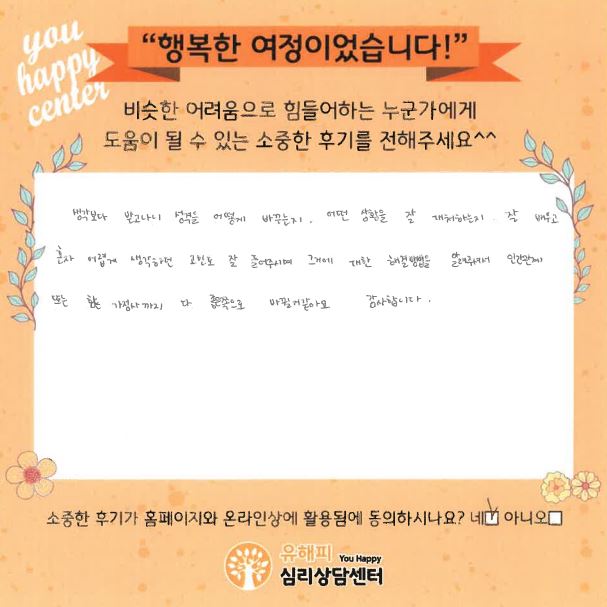 you
happy
center
“행복한 여정이었습니다!”
비슷한 어려움으로 힘들어하는 누군가에게
도움이 될 수 있는 소중한 후기를 전해주세요^^
생각보다 받고나니 성격을 어떻게 바꾸는지, 어떤 상황을 잘 대처하는지. 잘 배우고
혼자 어렵게 생각하던 고민도 잘 들어주시며 그거에 대한 해결방법을 알려주셔서 인간관계
또는 가정사까지 다 좋은쪽으로 바뀔거같아요 감사합니다.
소중한 후기가 홈페이지와 온라인상에 활용됨에 동의하시나요? 네☑ 아니오☐
유해피 You Happy
심리상담센터